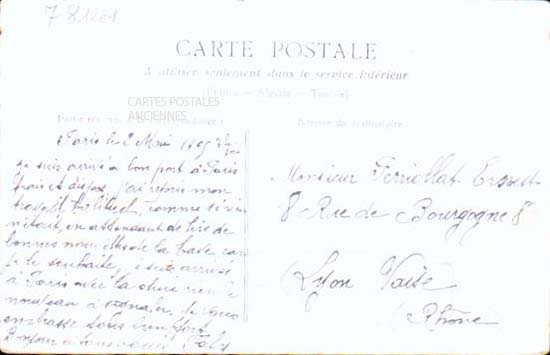 CARTE POSTALE
A utiliser seulement dans le service intérieur
(France — Algérie — Tunisie)
CARTES POSTALES
ANCIENNES
Adresse du destinataire
Paris le 2 Mai 1905
je suis arrivé a bon port à Paris
frais et dispos, j'ai repris mon
travail habituel, comme si rien
n'était, en attendant de lire de
bonnes nouvelles de la
je le souhaite
à Paris avec la pluie rien de
nouveau à signaler, je vous
embrasse tous bien fort
Bonjour a tous
Monsieur Ferriollat Ernest
8 Rue de Bourgogne 8
Lyon Vaise
Rhône